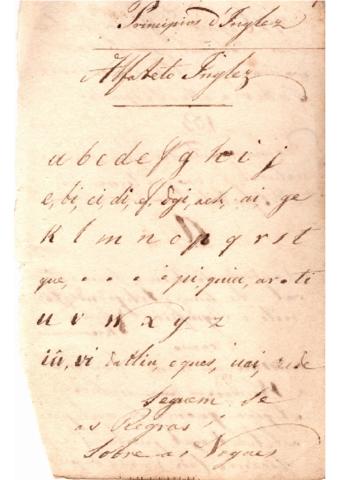 Principios d'Inglez
Alfabeto Inglez
a b c d e f g h i j
e, bi, ci, di, ef, dgi, ai, ge
k l m n o p q r s t
que, pi, quiu, ar, ti
u v w x y z
iú, vi eques, uai,
Seguem se
as Regras
Sobre as Vogaes